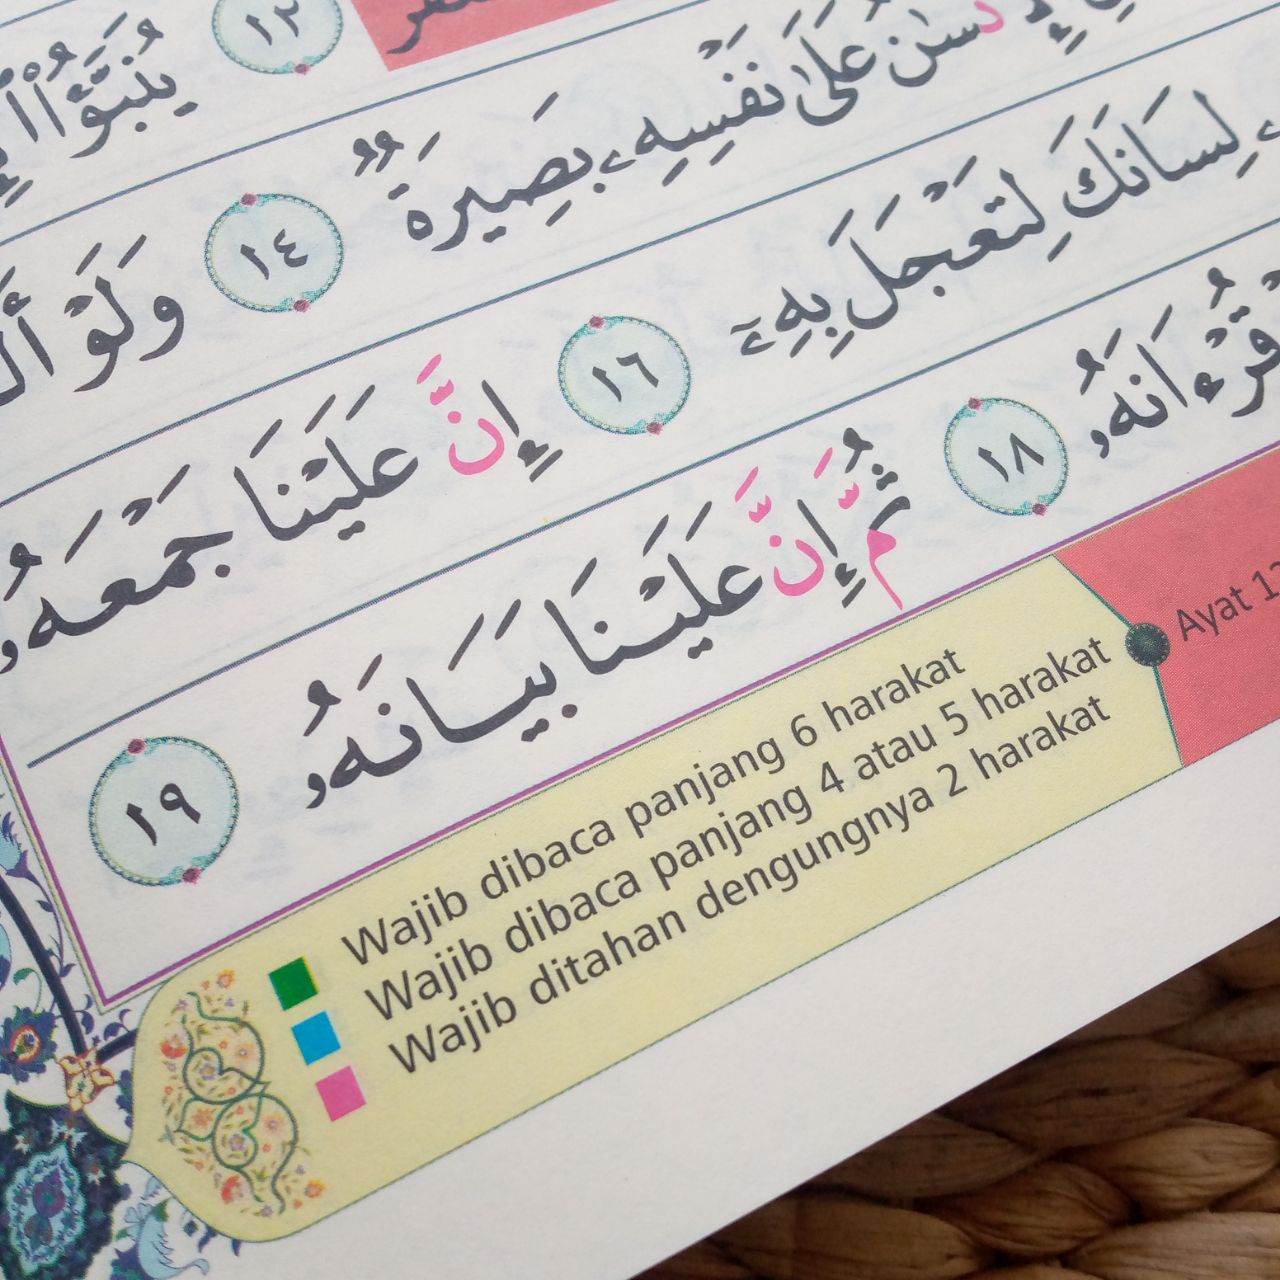 ١٢
يُنَبَّؤُا۟
عَلَىٰ نَفْسِهِۦ بَصِيرَةٌ ١٤ وَلَوْ
لِسَانَكَ لِتَعْجَلَ بِهِۦٓ ١٦ إِنَّ عَلَيْنَا جَمْعَهُۥ
قُرْءَانَهُۥ ١٨ ثُمَّ إِنَّ عَلَيْنَا بَيَانَهُۥ ١٩
Wajib dibaca panjang 6 harakat
Wajib dibaca panjang 4 atau 5 harakat
Wajib ditahan dengungnya 2 harakat
Ayat